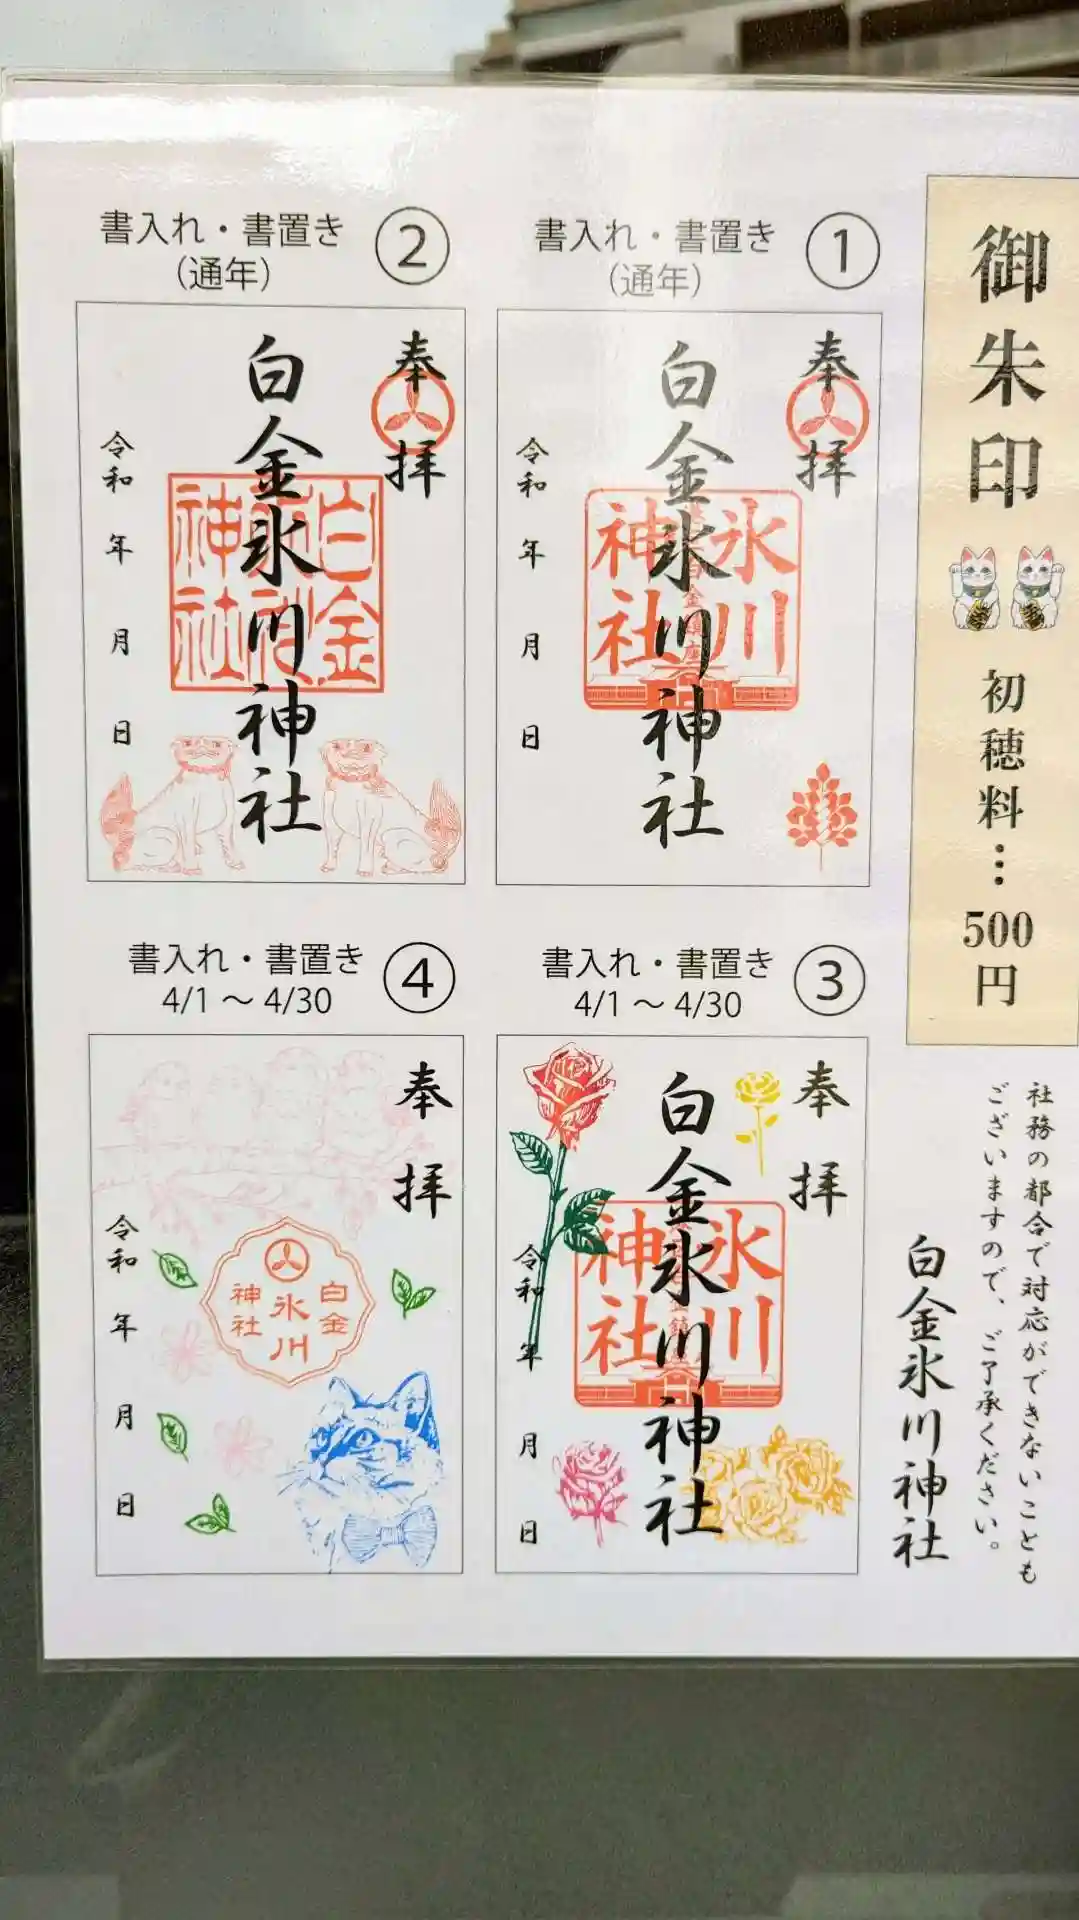 御朱印
初穂料…500円
社務の都合で対応ができないことも
ございますので、ご了承ください。
白金氷川神社
①
書入れ・書置き
(通年)
奉拝
白金氷川神社
氷川
神社
令和 年 月 日
②
書入れ・書置き
(通年)
奉拝
白金氷川神社
白金
神社
令和 年 月 日
③
書入れ・書置き
4/1 ～ 4/30
奉拝
白金氷川神社
氷川
神社
令和 年 月 日
④
書入れ・書置き
4/1 ～ 4/30
奉拝
白金
氷川
神社
令和 年 月 日